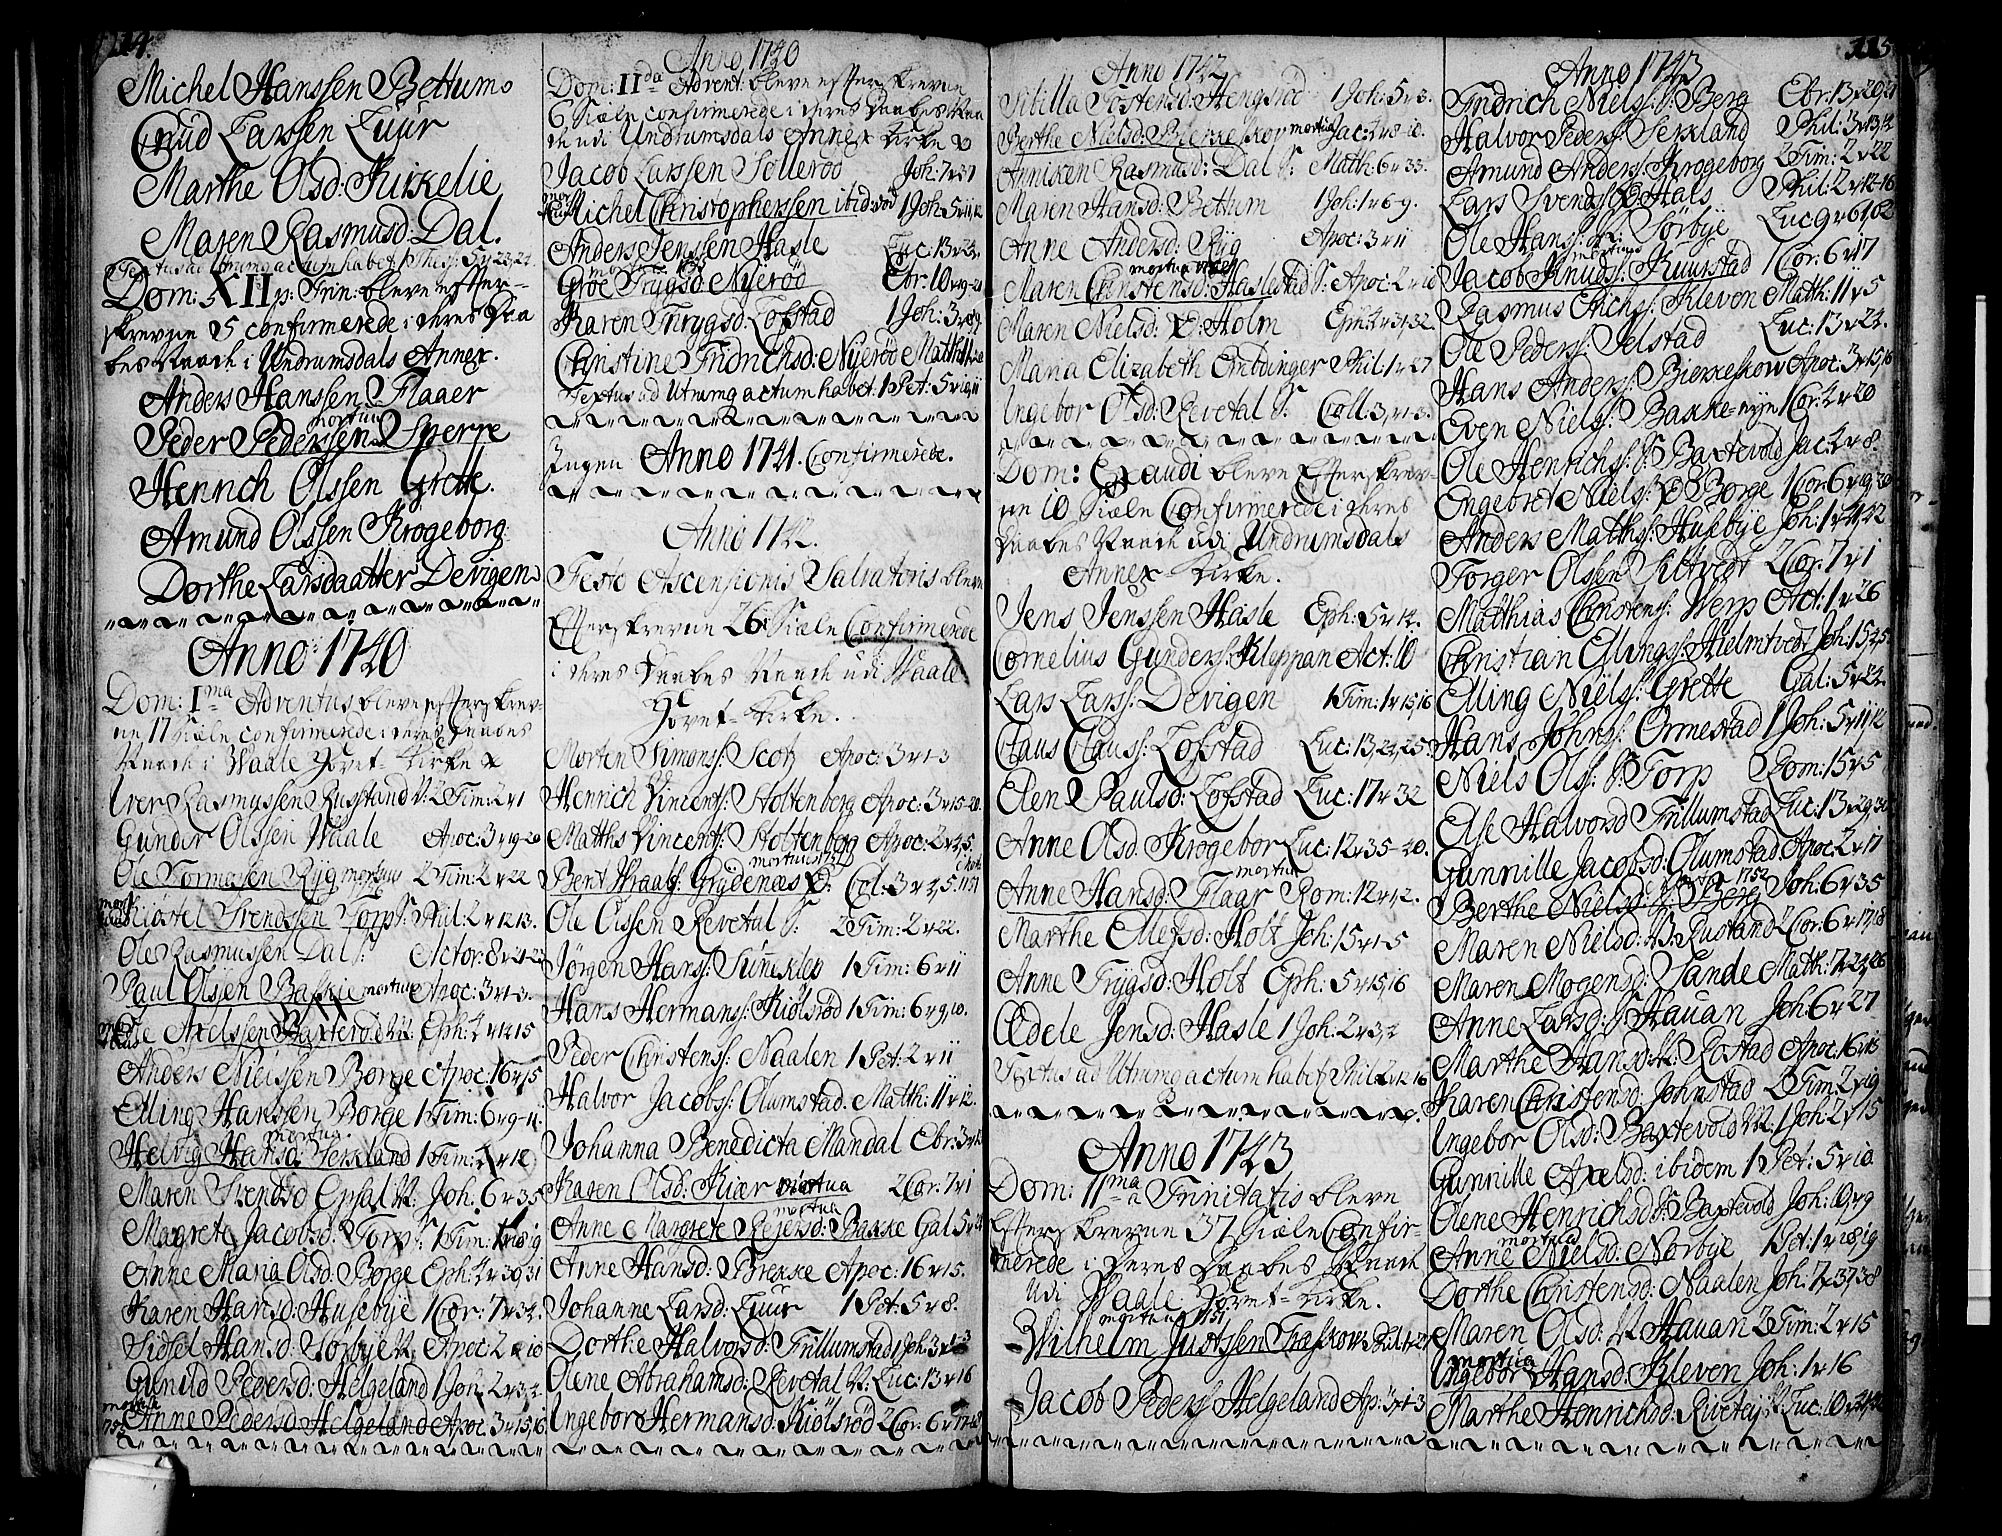 114.
Michel Hanssen Bettum
Cnud Larssen Luur
Marthe Olsd: Kirkelie
Maren Rasmusd: Dal.
Textus ad Utrumq actum habet 1 Thes: 5 v 23,24.
Dom: XII p: Trin: bleve effter-
skrevne 5 confirmerede i deres Daa
bes Naade i Undrumsdals Annex.
Anders Hanssen Flaaer
mortuus
Peder Pederssen Sperre
Henrich Olssen Grette.
Amund Olssen Krogeborg
Dorthe Larsdaatter Devigen
Anno 1740
Dom: Ima Adventus bleve effterskrev-
ne 17 Siæle confirmerede i deres Daabes
Naade i Waale Hovet-Kirke
Iver Rasmussen Rustand N: 2 Tim: 2 v 1
Gunder Olssen Waale Apoc: 3 v 19-20
Ole Tormosen Ryg mortuus 2 Tim: 2 v 22
Kiøstel Svendssen Torp S: Phil: 2 v 12 13.
Ole Rasmussen Dal S: Actor: 8 v 21-22
Paul Olssen Bakke mortuus Apoc: 3 v 1-3.
Ole Axelssen Baxterød N: Eph: 4 v 14 15
Anders Nielssen Borge Apoc: 16 v 15
Elling Hanssen Borge 1 Tim: 6 v 9-11.
mortua
Helvig Hansd: Serkland 1 Tim: 4 v 18
Maren Svendsd Opsal N: Joh: 6 v 35
Magrete Jacobsd: Torp S: 1 Tim: 1 v 18 19
Anne Maria Olsd: Borge Eph: 4 v 30 31
Karen Hansd: Husebye 1 Cor: 7 v 34.
Sidsel Hansd: Sørbye N: Apoc: 2 v 10
Gunild Pedersd: Helgeland 1 Joh: 2 v 3,4.
mortua
Anne Pedersd: Helgeland Apoc: 3 v 15,16
Anno 1740
Dom: IIda Advent: bleve effterskrevne
6 Siæle confirmerede i deres Daabes Naa
de udi Undrumsdals Annex Kirke
Jacob Larssen Sollerød Joh: 7 v 37
Michel Christopherssen ibid: 1 Joh: 5 v 11,12
Anders Jenssen Hasle Luc: 13 v 24.
mortua
Groe Trygsd: Nyerød Ebr: 10 v 19-21
Karen Thrygsd: Lofstad 1 Joh: 3 v 8,9.
Christine Fridrichsd: Nyerød Matth: 11 v 28
Textus ad Utrumq actum habet: 1 Pet: 5 v 10,11
Ingen Anno 1741. Confirmerede.
Anno 1742.
Festo Ascensionis Salvatoris bleve
Effterskrevne 26 Siæle Confirmerede
i deres Daabes Naade udi Waale
Hovet-Kirke.
Morten Simons: Scotz Apoc: 3 v 1-3
Henrich Vincents: Stoltenberg Apoc: 3 v 15-20.
Matths Vincents: Stoltenberg Apoc: 2 v 4,5.
mortuus 1751
Bent Wraals: Grydenæs Ø: Col: 3 v 4,5.
Ole Olssen Revetal S: 2 Tim: 2 v 22.
Jørgen Hans: Sunekleb 1 Tim: 6 v 11
Hans Hermans: Kiølsrød 1 Tim: 6 v 9,10.
Peder Christens: Naalen 1 Pet: 2 v 11
Halvor Jacobs: Olumstad. Matth: 11 v 12.
Johanna Benedicta Mandal Ebr: 3 v 12
Karen Olsd: Kiær mortua 2 Cor: 7 v 1
mortua
Anne Margrete Rejersd: Bakke Gal: 5 v 24
Anne Hansd: Brekke Apoc: 16 v 15.
Johanne Larsd: Luur 1 Pet: 5 v 8.
Dorthe Halvorsd: Frillumstad 1 Joh: 3 v 1-3
Olene Abrahamsd: Revetal N: Luc: 13 v 16
Ingebor Hermansd: Kiølsrød 2 Cor: 6 v 17-18
115
Anno 1742
Sibilla Tostensd: Hengsrød 1 Joh: 5 v 3.
Berthe Nielsd: Bierkeskov mortua Jac: 4 v 8-10.
Anniken Rasmusd: Dal S: Math: 6 v 33.
Maren Hansd: Bettum 1 Joh: 1 v 6,9.
Anne Andersd: Ryg Apoc: 3 v 11
mortua
Maren Christensd: Haslestad S: Apoc: 2 v 10
Maren Nielsd: Ø: Holm Eph: 4 v 31,32.
Maria Elizabeth Ombdinger Phil: 1 v 27
Ingebor Olsd: Revetal S: Coll: 3 v 1-3.
Dom: Exaudi bleve Effterskrev-
ne 10 Siæle Confirmerede i deres
Daabes Naade udi Undrumsdals
Annex-Kirke.
Jens Jenssen Hasle Eph: 5 v 14.
Cornelius Gunders: Kleppan Act: 10
Lars Lars: Devigen 1 Tim: 1 v 15,16
Claus Clauss: Lofstad Luc: 13,24,25
Olene Paulsd: Lofstad Luc: 17 v 32
Anne Olsd: Krogebor Luc: 12 v 35-40.
mortua
Anne Hansd: Flaar Rom: 12 v 12.
Marthe Ellefsd: Holt Joh: 15 v 1-5
Anne Trygsd: Holt Eph: 5 v 15,16
Edele Jensd: Hasle 1 Joh: 2 v 3,4
Textus ad Utrumq actum habet Phil: 2 v 12-16
Anno 1743
Dom: 11ma a Trinitatis bleve
Effterskrevne 37 Siæle Confir-
merede i Deres Daabes Naade
udi Waale Hovet-Kirke.
mortuus 1751
Wilhelm Justssen Fraskov Phil: 1 v 27
Jacob Peders: Helgeland Ap: 3 v 1-3
Anno 1743
Fridrich Niels: S: Berg Ebr: 13 v 20,21
Halvor Peders: Serkland Phil: 3 v 13,14
Amund Anders: Krogeborg 2 Tim: 2 v 22
Lars Svends: Ø: Hals Phil: 2 v 12-16
Ole Hans: Sørbye Luc 9 v 61,62
mortuus
Jacob Knuds: Kuurstad 1 Cor: 6 v 17
Rasmus Erichs: Kleven Matth: 11 v 5
Ole Peders: Jelstad Luc: 13 v 24.
Hans Anders: Bierkeskow Apoc: 3 v 15,16
Even Niels: Bakke-eye 1 Cor: 4 v 20
Ole Henrichs: S: Baxtevold Jac: 4 v 8.
Engebret Niels: Ø: Borge 1 Cor: 6 v 19,20
Anders Maths: Husebye Joh: 1 v 41,42
Torger Olssen Kiltvedt 2 Cor: 7 v 1
Matthias Christens: Werp Act: 1 v 26
Christian Ellings: Hielmtvedt Joh: 15,4,5
Elling Niels: Grette Gal: 5 v 24.
Hans Johns: Ormestad 1 Joh: 5 v 11,12
Niels Ols: S: Torp Rom: 15 v 5
Else Halvorsd Frillumstad Luc: 13 v 29,30
Gunnille Jacobsd: Olumstad Apoc: 2 v 17
mortua 1752
Berthe Nielsd: S: Berg Joh: 6 v 35
Maren Nielsd: N: Rustand 2 Cor: 6 v 17,18
Maren Mogensd: Sande Math: 7 v 24,26
Anne Larsd: S: Hauan Joh 6 v 27
Marthe Hansd: N: Rostad Apoc: 16 v 15
Karen Christensd: Johnstad 2 Tim: 2 v 19
Ingebor Olsd: Baxtevold N: 1 Joh: 2 v 15
Gunnille Axelsd: ibidem 1 Pet: 5 v 10.
Olene Henrichsd S: Baxtevold Joh: 10 v 9
mortua
Anne Nielsd: Norbye 1 Pet: 1 v 18,19
Dorthe Christensd: Naalen Joh: 7 v 37,38
Maren Olsd: N: Hauan 2 Tim: 2 v 15
mortua
Ingebor Hansd: Kleven Joh: 1 v 16
Marthe Henrichsd: Rivetey N: Luc: 10 v 41,42